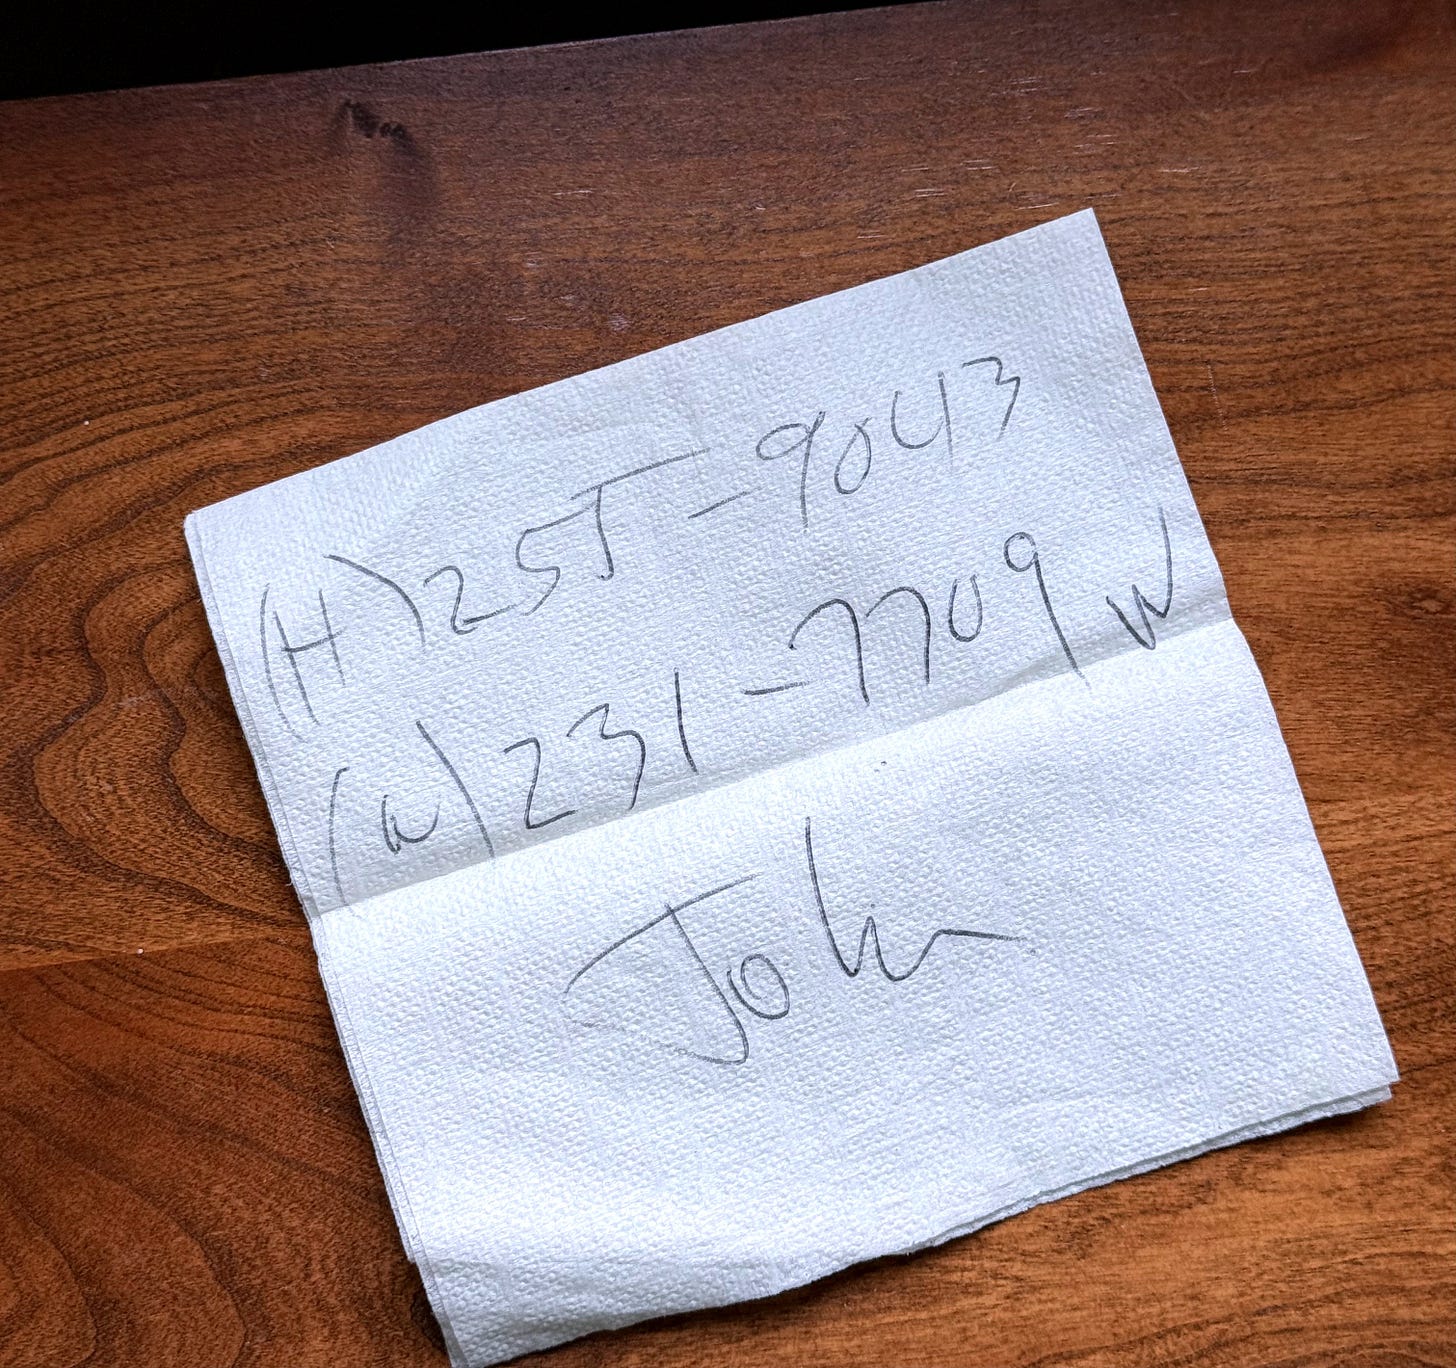 (H) 255-9043
(W) 231-7709 W
John